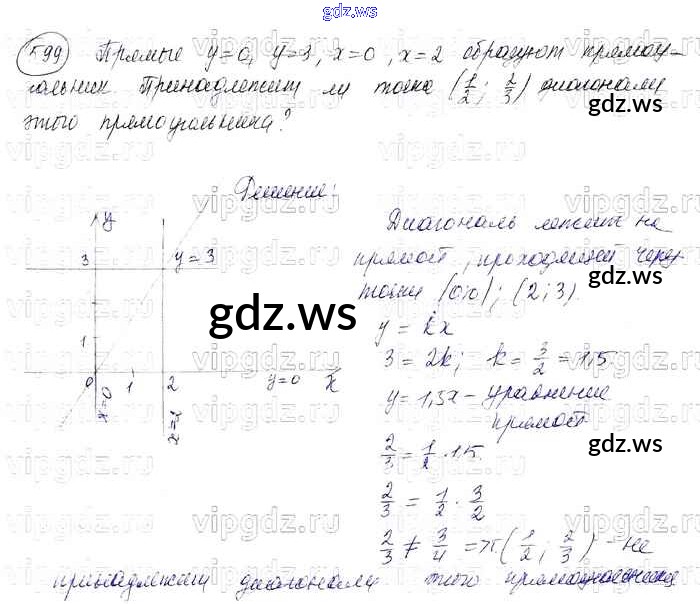 gdz.ws
599 Прямые y=0, y=3, x=0, x=2 образуют прямоу-
гольник. Принадлежит ли точка (1/2; 2/3) диагонали
этого прямоугольника?
Решение:
y
3
y=3
1
0
1
2
y=0
x
x=0
Диагональ лежит на
прямой, проходящей через
точки (0;0); (2;3).
y = kx
3 = 2k; k = 3/2 = 1,5
y = 1,5x - уравнение
прямой
2/3 = 1/2 · 1,5
2/3 = 1/2 · 3/2
2/3 ≠ 3/4 => т (1/2; 2/3) - не
принадлежит диагонали этого прямоугольника
gdz.ws
gdz.ws
gdz.ws
gdz.ws
gdz.ws
vipgdz.ru